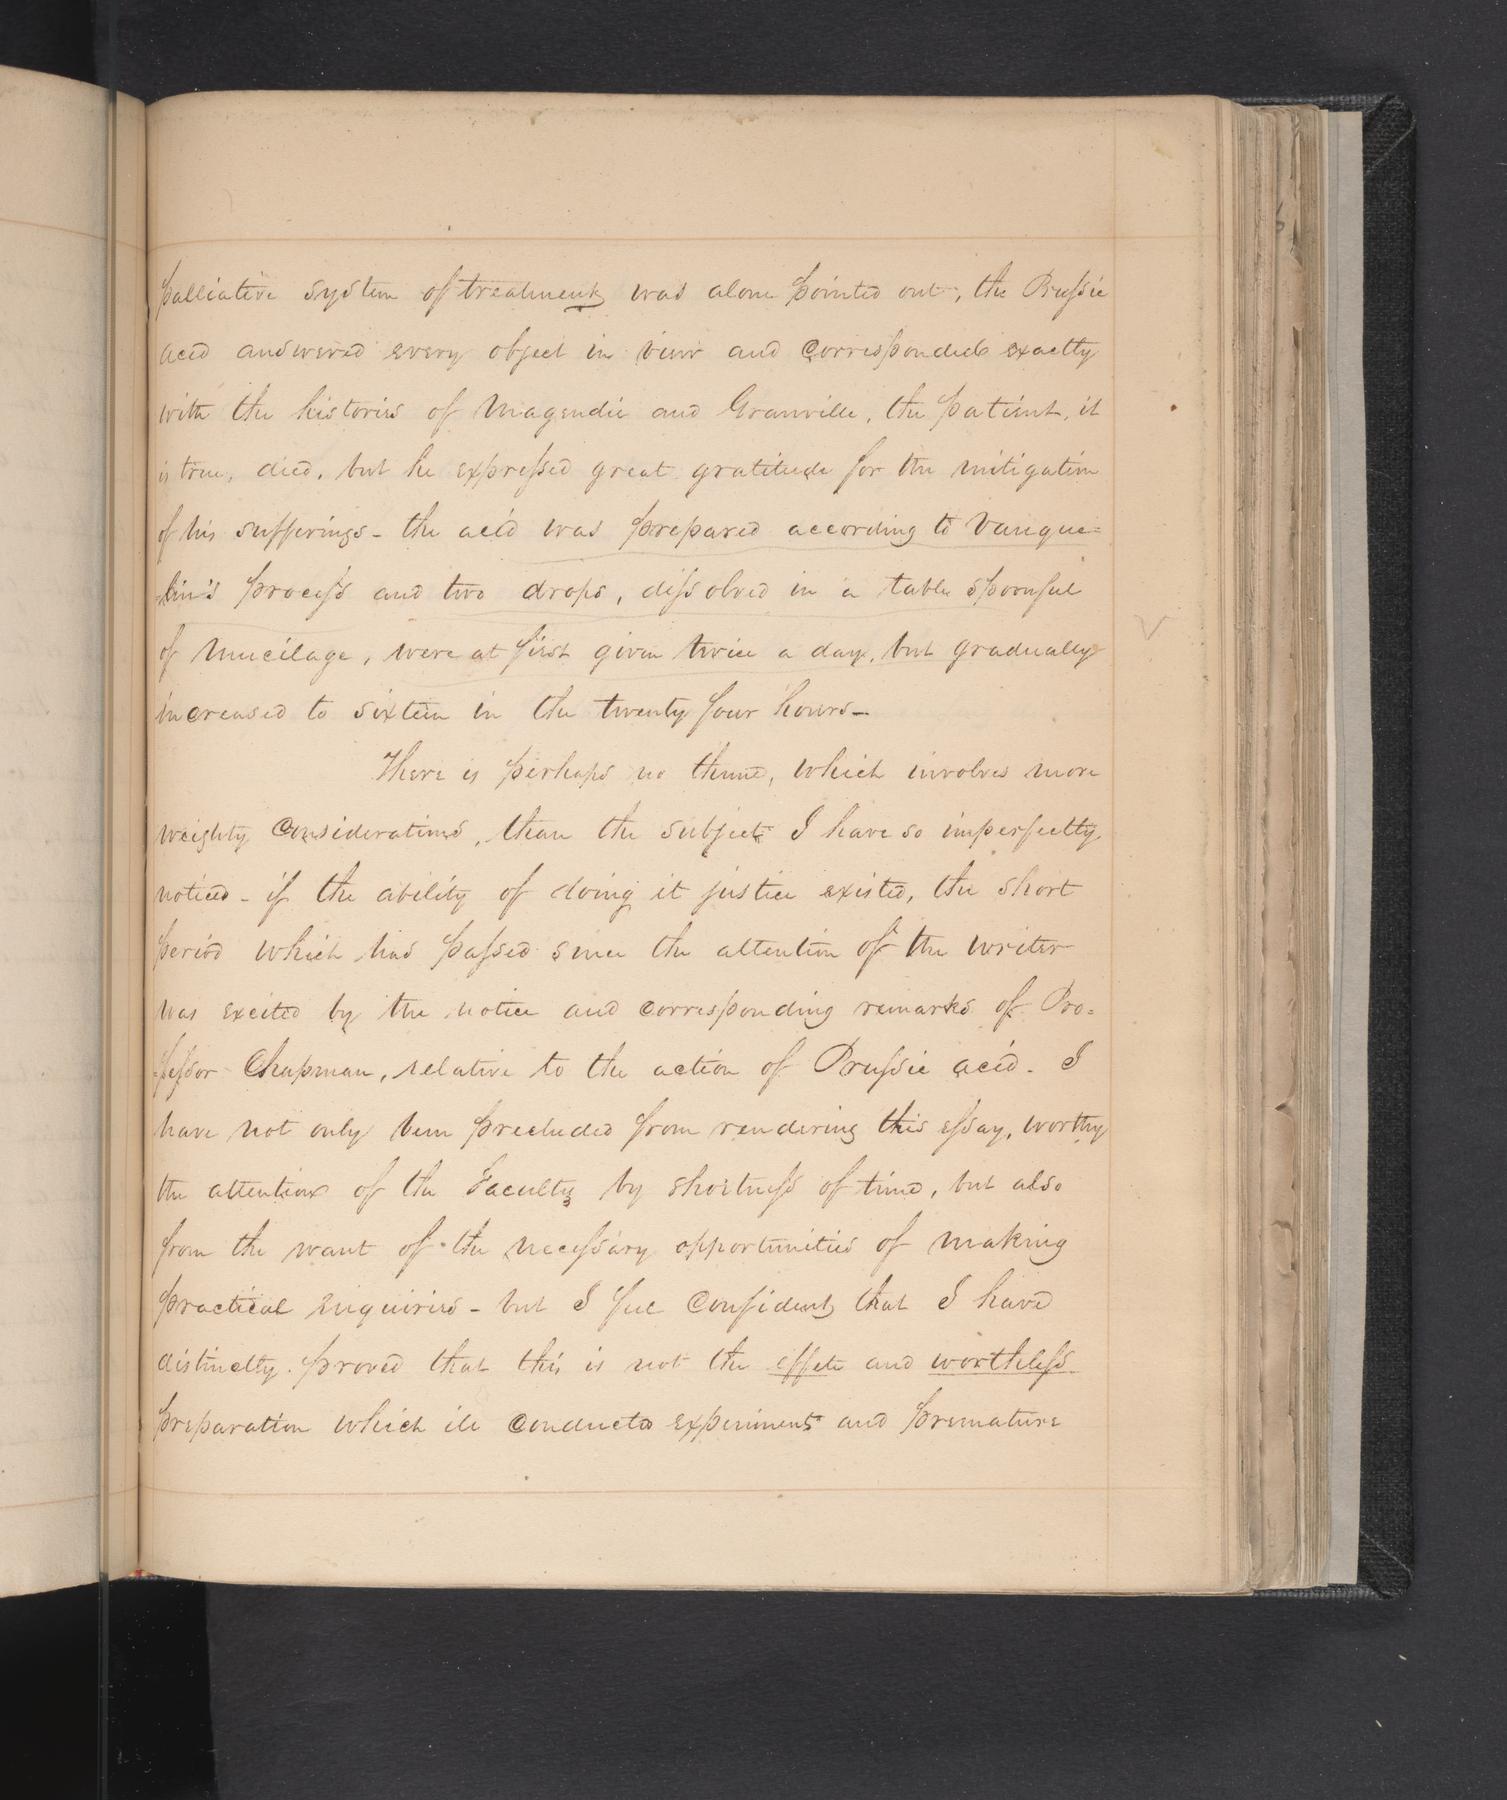 palliative system of treatment was alone pointed out, the Prussic
acid answered every object in view and corresponded exactly
with the histories of Magendie and Granville, the patient, it
is true, died, but he expressed great gratitude for the mitigation
of his sufferings - the acid was prepared according to Vauque=
=lin's process and two drops, dissolved in a table spoonful
of Mucilage, were at first given twice a day, but gradually
increased to sixteen in the twenty four hours-
There is perhaps no theme, which involves more
weighty considerations, than the subject I have so imperfectly
noticed - if the ability of doing it justice existed, the short
period which has passed since the attention of the writer
was excited by the notice and corresponding remarks of Pro=
=fessor Chapman, relative to the action of Prussic acid. I
have not only been precluded from rendering this essay, worthy
the attention of the Faculty by shortness of time, but also
from the want of the necessary opportunities of making
practical enquiries - but I feel confident that I have
distinctly proved that this is not the effete and worthless
preparation which ill conducted experiments and premature